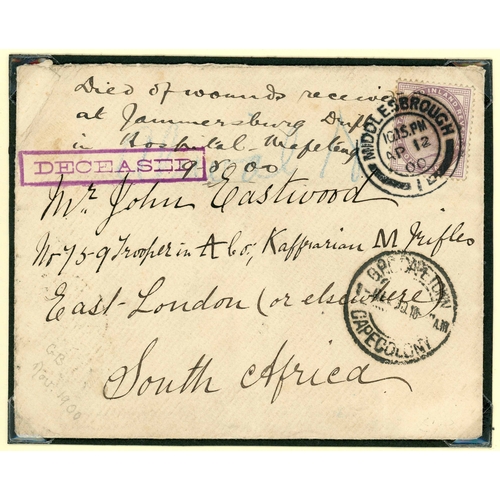 Died of wounds receiv
at Jammersburg Drift
in Hospital - Wepener
DECEASED
Mr John Eastwood
No 759 Trooper in A Co, Kaffrarian M Rifles
East-London (or elsewhere)
South Africa
MIDDLESBROUGH
10.15.PM
AP 12
00
CAPE COLONY
Nov. 1900